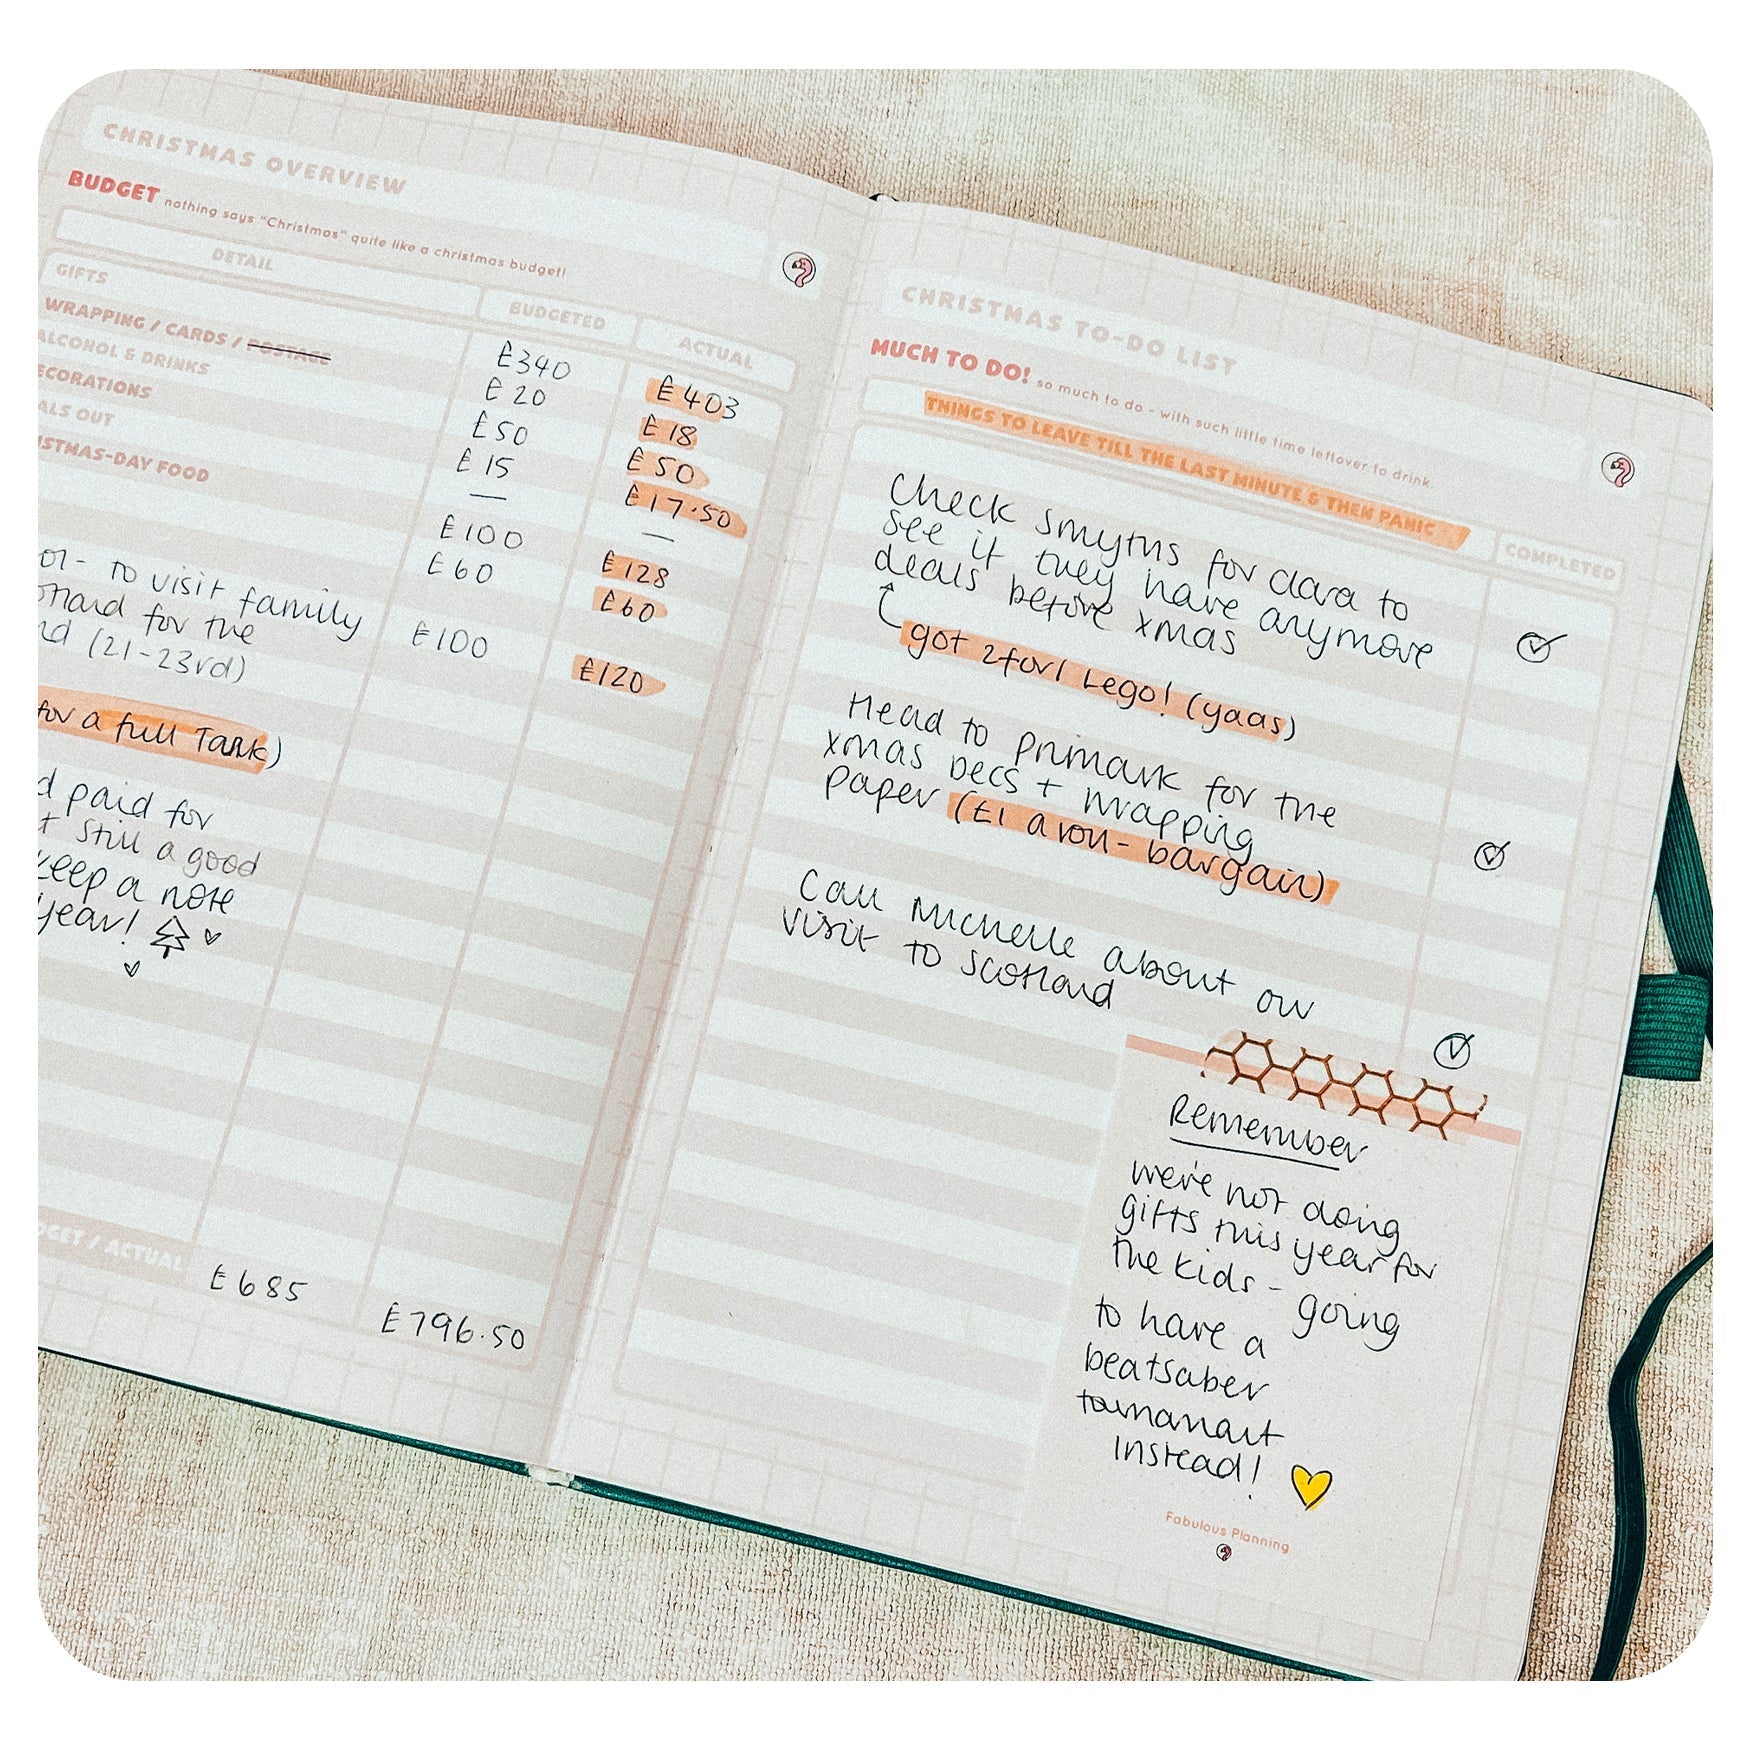 CHRISTMAS OVERVIEW
BUDGET nothing says "Christmas" quite like a christmas budget!
DETAIL
BUDGETED
ACTUAL
GIFTS
WRAPPING / CARDS / POSTAGE
ALCOHOL & DRINKS
ECORATIONS
ALS OUT
ISTMAS-DAY FOOD
£340
£403
£20
£18
£50
£50
£15
£17.50
—
—
£100
£128
£60
£60
- to visit family
for the
(21-23rd)
£100
£120
for a full Tank)
d paid for
t still a good
keep a note
year!
DGET / ACTUAL
£685
£796.50
CHRISTMAS TO-DO LIST
MUCH TO DO! so much to do - with such little time leftover to drink.
THINGS TO LEAVE TILL THE LAST MINUTE & THEN PANIC
COMPLETED
Check smyths for clara to
see if they have anymore
deals before xmas
got 2for1 Lego! (yaas)
Head to primark for the
xmas Decs + wrapping
paper (£1 a roll - bargain)
Call Michelle about our
visit to Scotland
Remember
we're not doing
gifts this year for
the kids - going
to have a
beatsaber
tournamant
instead!
Fabulous Planning